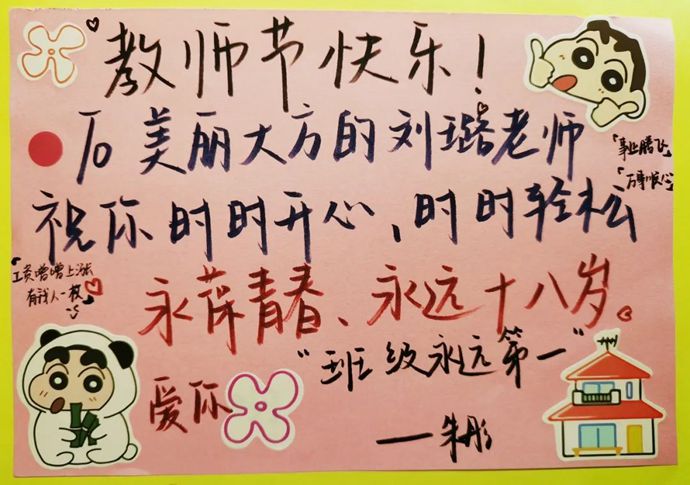 教师节快乐！
To 美丽大方的刘璐老师
「事业腾飞」
万事顺心
祝你时时开心、时时轻松
「工资噌噌上涨
有钱人一枚」
永葆青春、永远十八岁。
"班级永远第一"
爱你
——朱彤